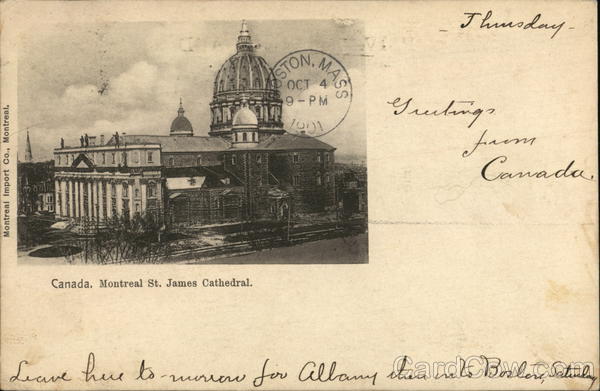 Thursday-
Greetings
from
Canada.
BOSTON, MASS
OCT 4
9-PM
1901
Montreal Import Co., Montreal.
Canada. Montreal St. James Cathedral.
Leave here to-morrow for Albany then into Boston
CardCow.com